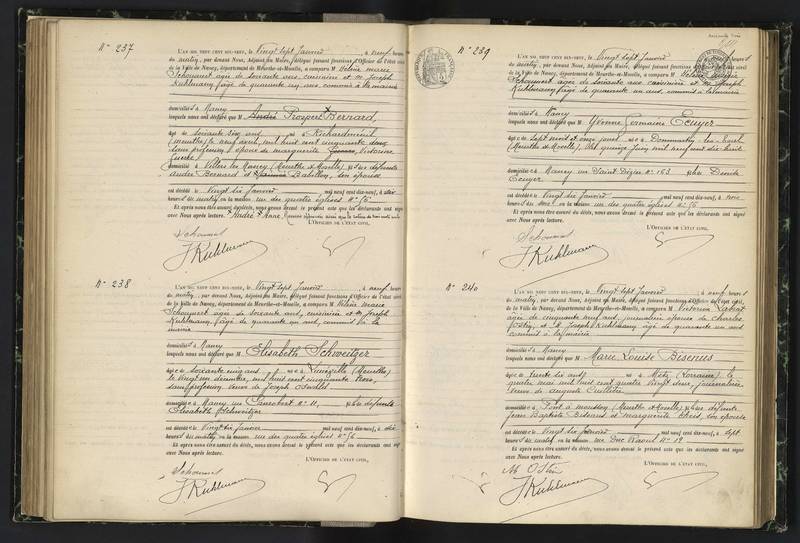 N° 237
L'AN MIL NEUF CENT DIX-NEUF, le Vingt sept Janvier, à neuf heures
du matin, par devant Nous, Adjoint au Maire, délégué faisant fonctions d'Officier de l'état civil
de la Ville de Nancy, département de Meurthe-et-Moselle, a comparu M Hélène marie
Schoumert agée de soixante ans, cuisinière et M Joseph
Kuhlmann, âgé de quarante un ans commis à la mairie
domiciliés à Nancy
lesquels nous ont déclaré que M Prosper Bernard,
âgé de soixante six ans né à Richardménil
(meurthe) le neuf avril, mil huit cent cinquante deux
sans profession, époux de marguerite Victorine
domicilié à Villers les Nancy (Meurthe et Moselle) fils de défunts
André Bernard et Babillon, son épouse
est décédé le vingt six Janvier mil neuf cent dix-neuf, à six
heures du matin en la maison rue des quatre églises n°
Et après nous être assuré du décès, nous avons dressé le présent acte que les déclarants ont signé
avec Nous après lecture.
L'OFFICIER DE L'ÉTAT CIVIL,
Schoumert
J Kuhlmann
N° 238
L'AN MIL NEUF CENT DIX-NEUF, le Vingt sept Janvier, à neuf heures
du matin, par devant Nous, Adjoint au Maire, délégué faisant fonctions d'Officier de l'état civil
de la Ville de Nancy, département de Meurthe-et-Moselle, a comparu M Hélène marie
Schoumert agée de soixante ans, cuisinière et M Joseph
Kuhlmann, âgé de quarante un ans, commis à la
mairie
domiciliés à Nancy
lesquels nous ont déclaré que M Elisabeth Schweitzer
âgée de soixante cinq ans née à Lunéville (Meurthe)
le vingt un décembre, mil huit cent cinquante trois,
sans profession, veuve de Joseph
domiciliée à Nancy rue n° 11, fille de défunte
Elisabeth Schweitzer
est décédée le Vingt six Janvier mil neuf cent dix-neuf, à six
heures du matin, en la maison rue des quatre églises n°
Et après nous être assuré du décès, nous avons dressé le présent acte que les déclarants ont signé
avec Nous après lecture.
L'OFFICIER DE L'ÉTAT CIVIL,
Schoumert
J Kuhlmann
N° 239
L'AN MIL NEUF CENT DIX-NEUF, le Vingt sept Janvier, heures
du matin, par devant Nous, Adjoint au Maire, délégué faisant fonctions d'Officier de l'état civil
de la Ville de Nancy, département de Meurthe-et-Moselle, a comparu M Hélène marie
Schoumert agée de soixante ans cuisinière et M Joseph
Kuhlmann âgé de quarante un ans, commis à la mairie
domiciliés à Nancy
lesquels nous ont déclaré que M Yvonne Germaine Ecuyer
âgée de sept mois et onze jours née à Dommartin
(Meurthe et Moselle), le quinze Juin mil neuf cent dix huit
domiciliée à Nancy rue Saint Dizier n° 163 fille de Denise
Ecuyer
est décédée le Vingt six Janvier mil neuf cent dix-neuf, à onze
heures du en la maison rue des quatre églises n°
Et après nous être assuré du décès, nous avons dressé le présent acte que les déclarants ont signé
avec Nous après lecture.
L'OFFICIER DE L'ÉTAT CIVIL,
Schoumert
J Kuhlmann
N° 240
L'AN MIL NEUF CENT DIX-NEUF, le Vingt sept Janvier, à neuf heures
du matin, par devant Nous, Adjoint au Maire, délégué faisant fonctions d'Officier de l'état civil
de la Ville de Nancy, département de Meurthe-et-Moselle, a comparu M Victorine
agée de cinquante neuf ans, journalière épouse de Charles
et M Joseph Kuhlmann âgé de quarante un ans
commis à la mairie
domiciliés à Nancy
lesquels nous ont déclaré que M Marie Louise Bisenus
âgée de trente six ans née à Metz (Lorraine) le
quatre mai mil huit cent quatre vingt deux, journalière,
veuve de Auguste
domiciliée à Pont à mousson (Meurthe et Moselle) fille de défunts
Jean Baptiste Bisenus et marguerite son épouse
est décédée le Vingt six Janvier mil neuf cent dix-neuf, à sept
heures du matin, en la maison rue Duc Raoul n° 19
Et après nous être assuré du décès, nous avons dressé le présent acte que les déclarants ont signé
avec Nous après lecture.
L'OFFICIER DE L'ÉTAT CIVIL,
J Kuhlmann